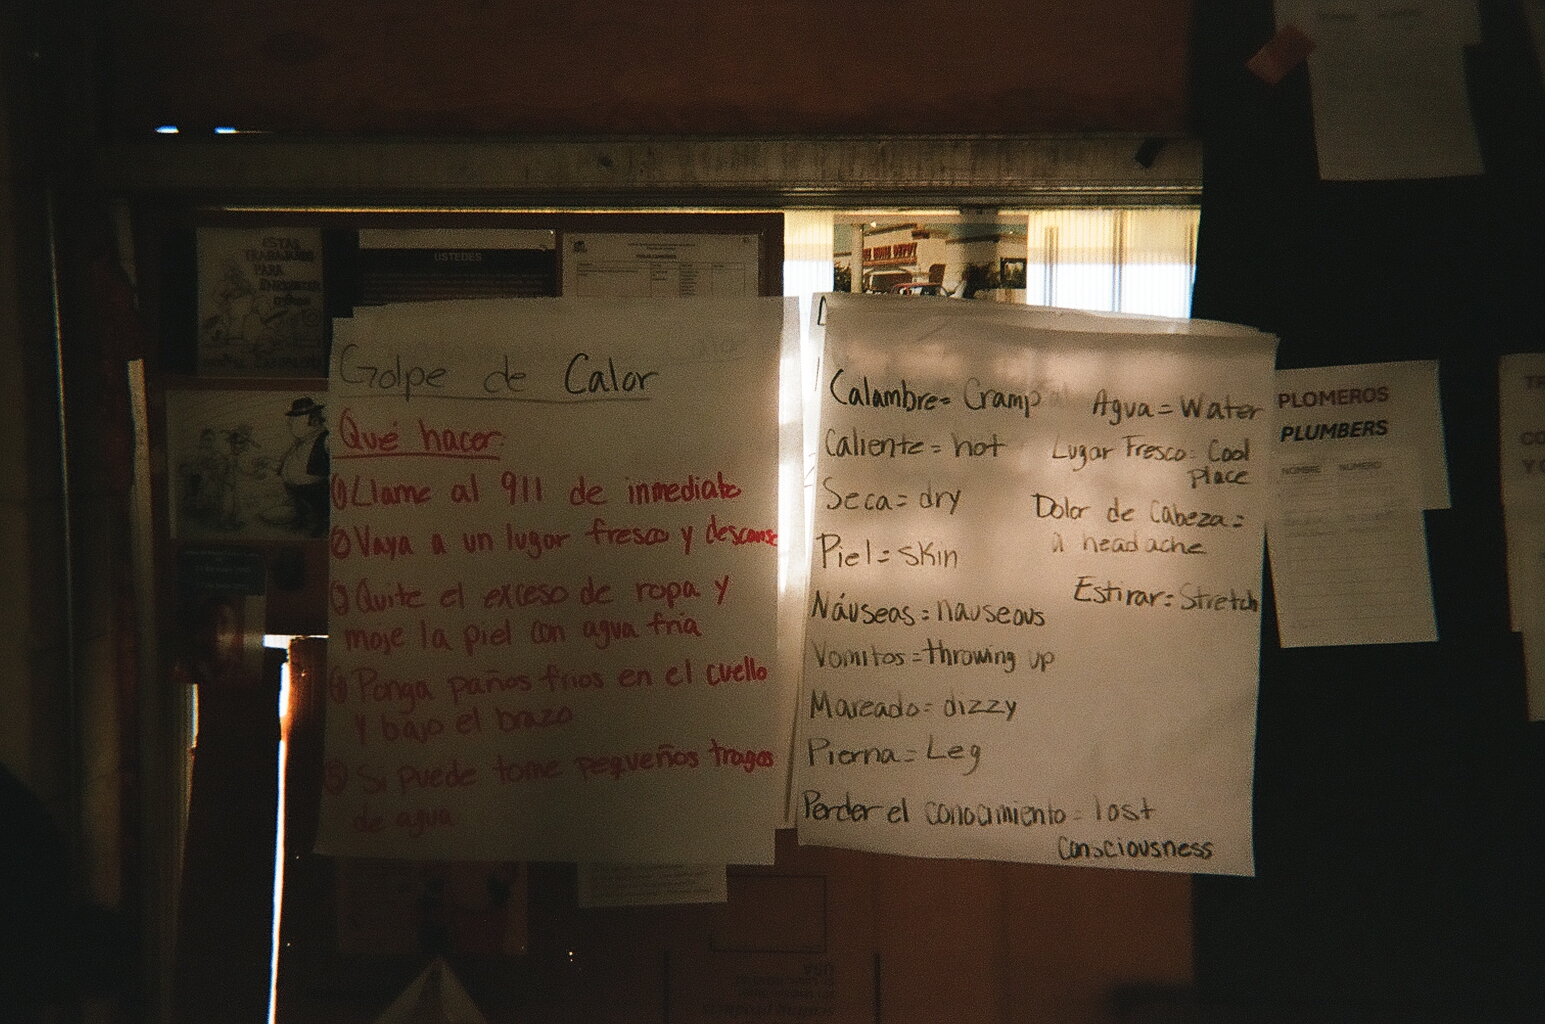 ESTAS
TRABAJANDO
PARA
USTEDES
Golpe de Calor
Qué hacer:
① Llame al 911 de inmediato
② Vaya a un lugar fresco y descanse
③ Quite el exceso de ropa y
moje la piel con agua fría
④ Ponga paños frios en el cuello
y bajo el brazo
⑤ Si puede tome pequeños tragos
de agua
Calambre= Cramp
Caliente = hot
Seca = dry
Piel = skin
Náuseas = nauseous
Vomitos = throwing up
Mareado = dizzy
Pierna = Leg
Perder el conocimiento = lost
Consciousness
Agua = Water
Lugar Fresco = Cool
place
Dolor de Cabeza =
a headache
Estirar = Stretch
PLOMEROS
PLUMBERS
NOMBRE NUMERO